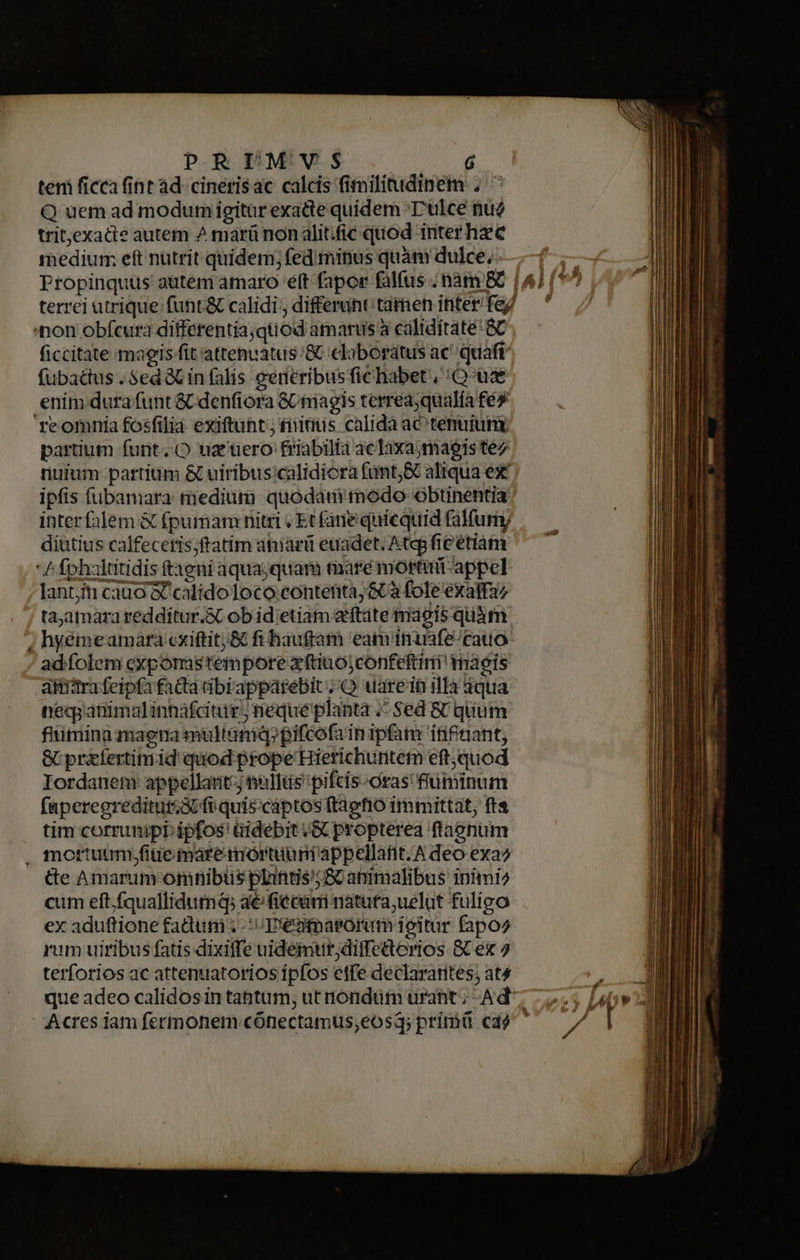 PRIMVS 6
tem sicca sint ad cineris ac calcis similitudinem .
Q uem ad modum igitur exacte quidem Dulce nu⸗
trit, exacte autem Amarū non alit: sic quod inter hæc
medium est nutrit quidem, sed minus quàm dulce.
Propinquus autem amaro est sapor salsus . nam &
terrei utrique sunt & calidi, differunt tamen inter se⸗
non obscura differentia, quod amarus à caliditate &
siccitate magis sit attenuatus & elaboratus ac quasi
subactus . Sed & in salis generibus sic habet . Q uæ
enim dura sunt & densiora & magis terrea, qualia fe⸗
re omnia fossilia existunt, minus calida ac tenuium
partium sunt . Q uæ uero friabilia ac laxa, magis te⸗
nuium partium & uiribus calidiora sunt, & aliqua ex
ipsis subamara medium quodam modo obtinentia
inter salem & spumam nitri . Et sane quicquid salsum
diutius calfeceris, statim amarū euadet. Atq; sic etiam
Asphaltitidis stagni aqua, quam mare mortuū appel
lant, in cauo & calido loco contenta, & à sole exassa⸗
ta, amara redditur. & ob id etiam æstate magis quàm
hyeme amara existit, & si haustam eam in uase cauo
ad solem exponas tempore æstiuo, confestim magis
amara seipsa facta tibi apparebit . Q uare in illa aqua
neq; animal innascitur, neque planta . Sed & quum
flumina magna multumq; piscosa in ipsam influant,
& præsertim id quod prope Hierichuntem est, quod
Iordanem appellant, nullus piscis oras fluminum
superegreditur. & si quis captos stagno immittat, sta
tim corrumpi ipsos uidebit . & propterea stagnum
mortuum, siue mare mortuum appellant. A deo exa⸗
cte Amarum omnibus plantis, & animalibus inimi⸗
cum est, squallidumq; ac siccum natura, uelut fuligo
ex adustione factum . De amarorum igitur sapo⸗
rum uiribus satis dixisse uidemur, dissectorios & ex⸗
tersorios ac attenuatorios ipsos esse declarantes, at⸗
que adeo calidos in tantum, ut nondum urant . Ad
Acres iam sermonem cōnectamus, eosq; primū ca⸗